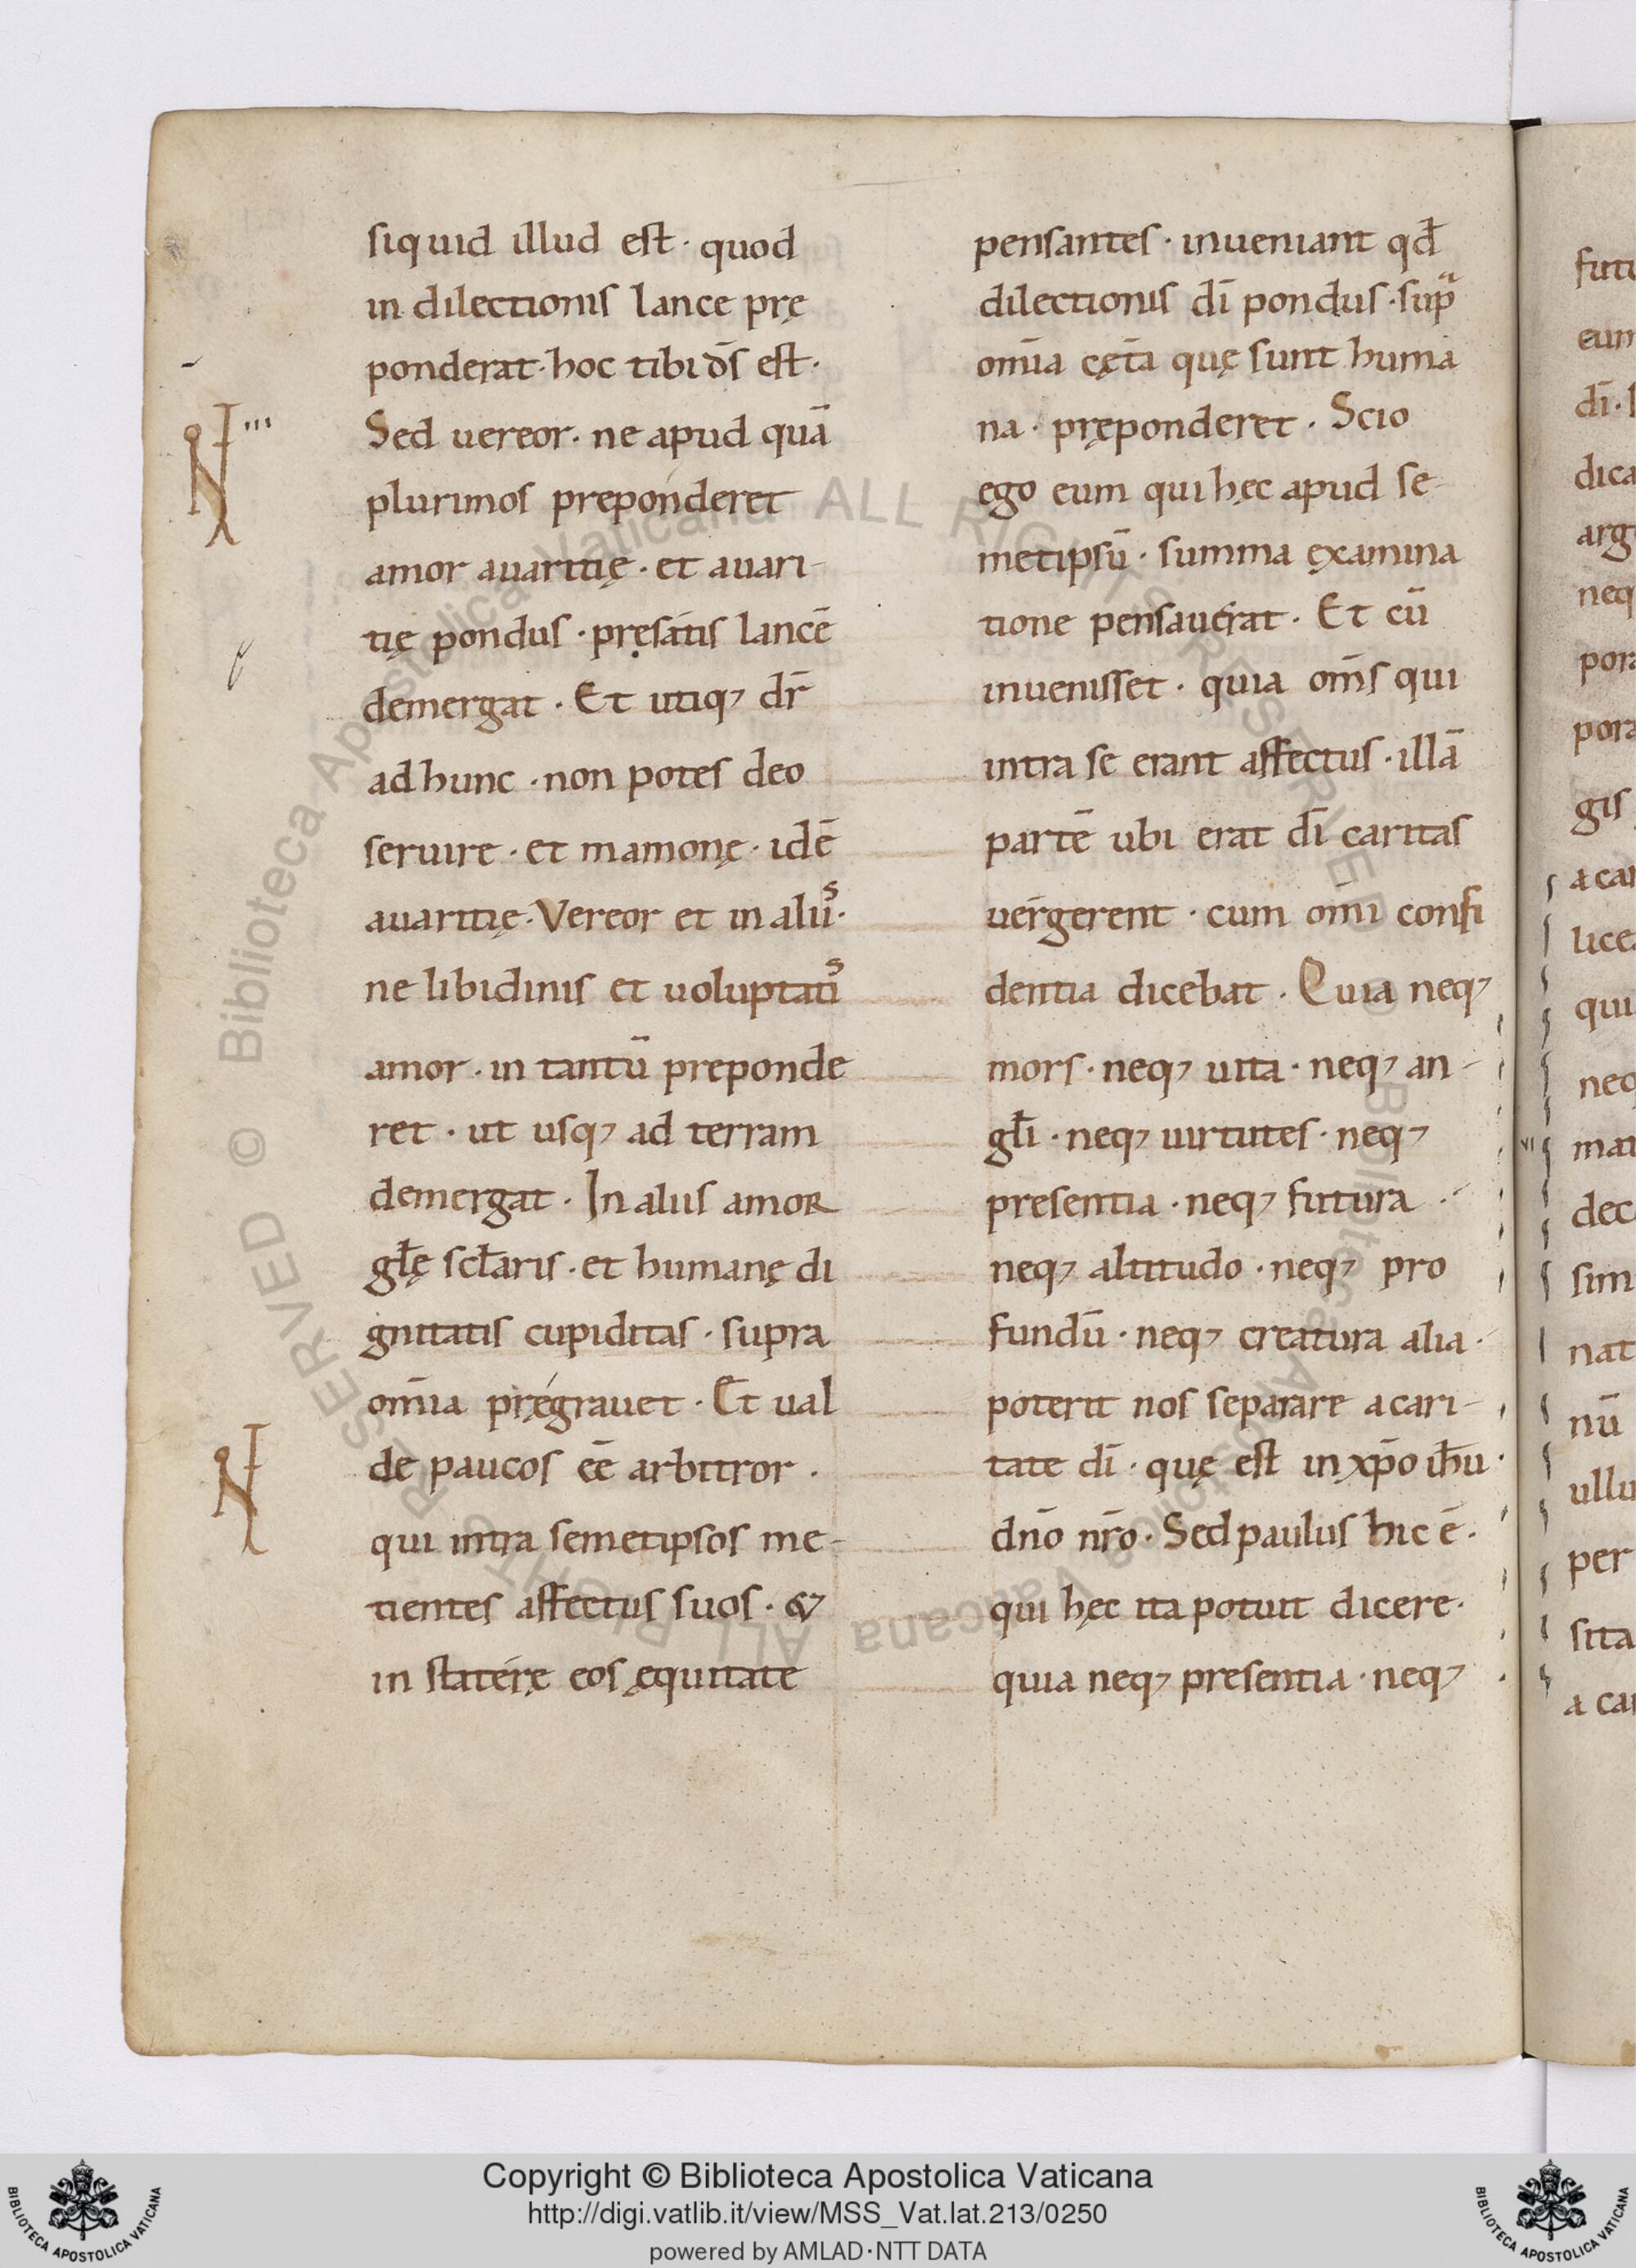 siquid illud est · quod
in dilectionis lance prę
ponderat · hoc tibi ds̄ est ·
Sed uereor · ne apud quā
plurimos preponderet
amor auaritię · et auari-
tię pondus · pręsatis lancē
demergat · Et utiq; dr̄
ad hunc · non potes deo
seruire · et mamonę · idē
auaritię · Vereor et in aliis ·
ne libidinis et uoluptatis
amor · in tantū preponde
ret · ut usq; ad terram
demergat · In aliis amor
gl̄ę scl̄aris · et humanę di
gnitatis cupiditas · supra
om̄ia pręgrauet · Et ual
de paucos eē arbitror ·
qui intra semetipsos me-
tientes affectus suos · &
in staterę eos ęquitate
pensantes · inueniant qd̄
dilectionis dī pondus · sup̄a
om̄ia cęt̄a quę sunt huma
na · pręponderet · Scio
ego eum qui hęc apud se
metipsū · summa ęxamina
tione pensauerat · Et cū
inuenisset · quia om̄s qui
intra se erant affectus · illā
partē ubi erat dī caritas
uergerent · cum om̄i confi
dentia dicebat · Quia neq;
mors · neq; uita · neq; an-
gl̄i · neq; uirtutes · neq;
presentia · neq; futura ·
neq; altitudo · neq; pro
fundū · neq; creatura alia ·
poterit nos separare a cari-
tate dī · quę est in xp̄o ih̄u ·
dn̄o nr̄o · Sed paulus hic ē ·
qui hęc ita potuit dicere ·
quia neq; presentia · neq;
futu
eum
dī · l
dica
arg
neq
pora
pora
gis
a car
lice
qui
neq
mat
dec
sim
nat
nū
ullu
per
sita
a car
© Biblioteca Apostolica Vaticana ALL RIGHTS RESERVED © Biblioteca Apostolica Vaticana ALL RIGHTS RESERVED
Copyright © Biblioteca Apostolica Vaticana
http://digi.vatlib.it/view/MSS_Vat.lat.213/0250
powered by AMLAD·NTT DATA
BIBLIOTECA APOSTOLICA VATICANA
BIBLIOTECA APOSTOLICA VATICANA